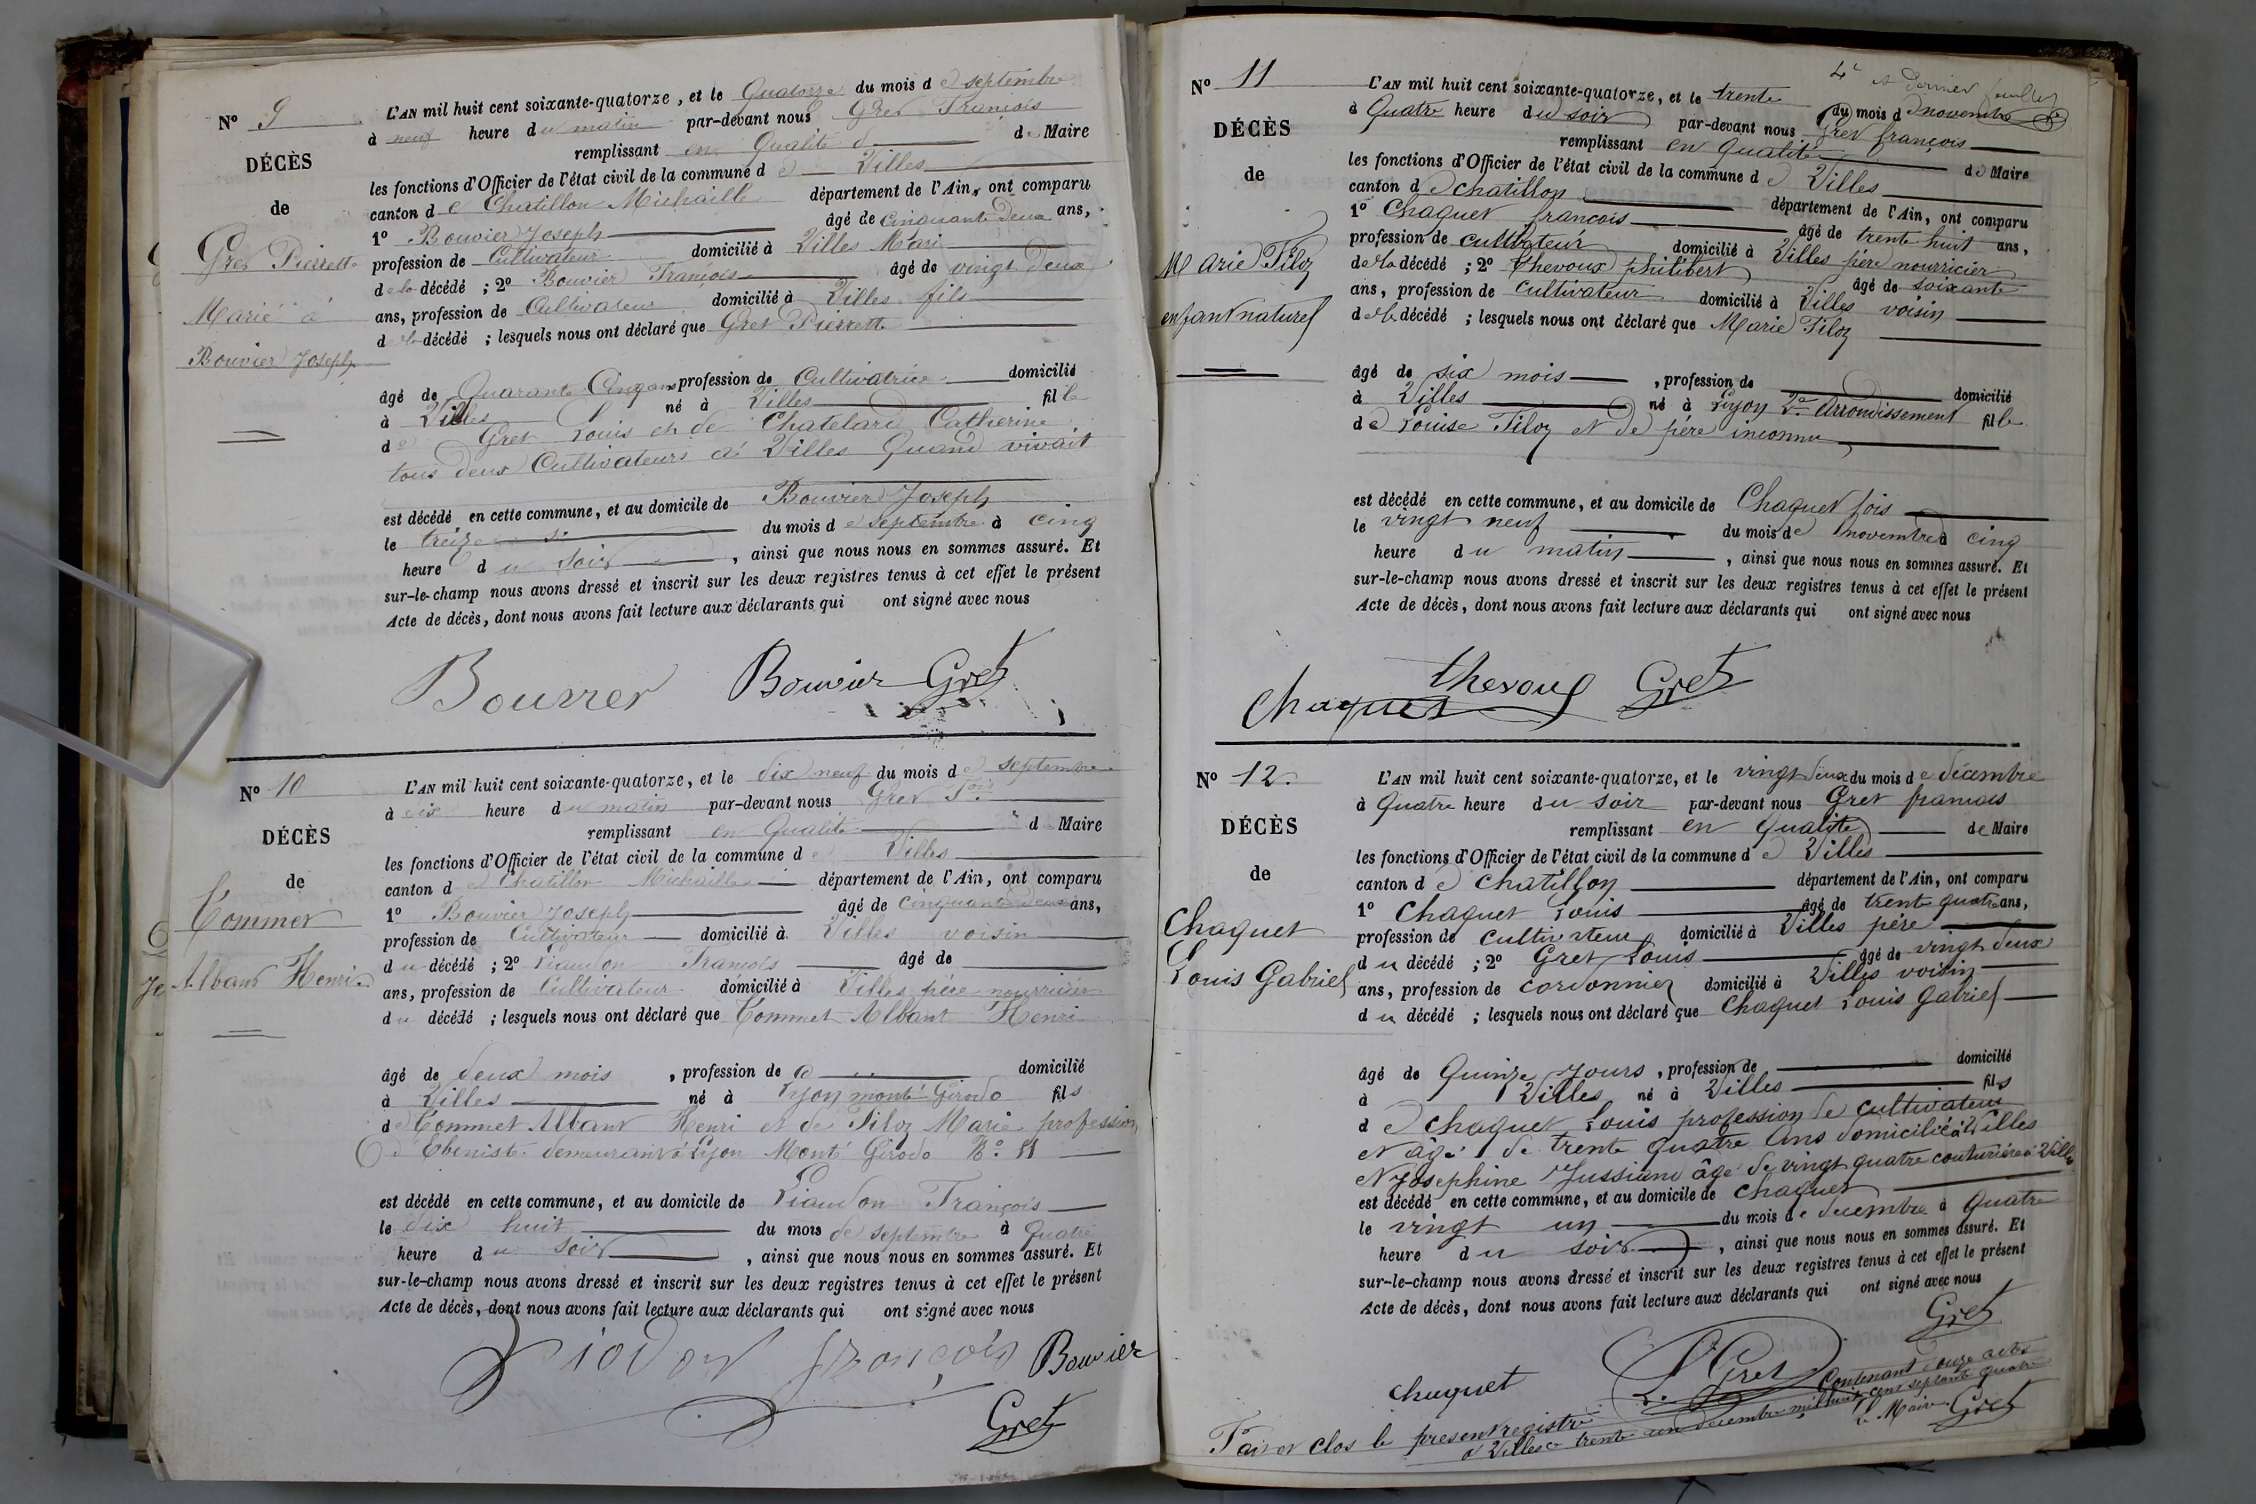 N° 9
DÉCÈS
de
Gret Pierrette
Marié à
Bouvier Joseph
L'AN mil huit cent soixante-quatorze, et le Quatorze du mois de septembre
à neuf heure du matin par-devant nous Gret François
remplissant en Qualité de Maire
les fonctions d'Officier de l'état civil de la commune de Villes
canton de Chatillon Michaille département de l'Ain, ont comparu
1° Bouvier Joseph âgé de Cinquante Deux ans,
profession de Cultivateur domicilié à Villes Mari
de la décédé ; 2° Bouvier François âgé de vingt Deux
ans, profession de Cultivateur domicilié à Villes fils
de la décédé ; lesquels nous ont déclaré que Gret Pierrette
âgé de Quarante Cinq ans profession de Cultivatrice domicilié
à Villes né à Villes fille
de Gret Louis et de Chatelard Catherine
tous deux Cultivateurs à Villes Quand vivait
est décédé en cette commune, et au domicile de Bouvier Joseph
le treize du mois de septembre à cinq
heure du soir, ainsi que nous nous en sommes assuré. Et
sur-le-champ nous avons dressé et inscrit sur les deux registres tenus à cet effet le présent
Acte de décès, dont nous avons fait lecture aux déclarants qui ont signé avec nous
Bouvier Gret
N° 10
DÉCÈS
de
Tommet
Albant Henri
L'AN mil huit cent soixante-quatorze, et le dix neuf du mois de septembre
à dix heure du matin par-devant nous Gret Fois
remplissant en Qualité de Maire
les fonctions d'Officier de l'état civil de la commune de Villes
canton de Chatillon Michaille département de l'Ain, ont comparu
1° Bouvier Joseph âgé de cinquante deux ans,
profession de Cultivateur domicilié à Villes voisin
du décédé ; 2° Liaudon François âgé de
ans, profession de Cultivateur domicilié à Villes père nourricier
du décédé ; lesquels nous ont déclaré que Tommet Albant Henri
âgé de deux mois, profession de domicilié
à Villes né à Lyon monté Girodo fils
de Tommet Albant Henri et de Filoz Marie profession
d'Ebeniste demeurant à Lyon Monté Girodo N° 11
est décédé en cette commune, et au domicile de Liaudon François
le dix huit du mois de septembre à quatre
heure du soir, ainsi que nous nous en sommes assuré. Et
sur-le-champ nous avons dressé et inscrit sur les deux registres tenus à cet effet le présent
Acte de décès, dont nous avons fait lecture aux déclarants qui ont signé avec nous
françois Bouvier
Gret
4e et dernier feuillet
N° 11
DÉCÈS
de
Marie Filoz
enfant naturel
L'AN mil huit cent soixante-quatorze, et le trente du mois de novembre
à Quatre heure du soir par-devant nous Gret françois
remplissant en Qualité de Maire
les fonctions d'Officier de l'état civil de la commune de Villes
canton de chatillon département de l'Ain, ont comparu
1° Chaquet francois âgé de trente huit ans,
profession de cultivateur domicilié à Villes père nourricier
de la décédé ; 2° thevoux philibert âgé de soixante
ans, profession de cultivateur domicilié à Villes voisin
de la décédé ; lesquels nous ont déclaré que Marie Filoz
âgé de six mois, profession de domicilié
à Villes né à Lyon 2e Arrondissement fille
de Louise Filoz et de père inconnu
est décédé en cette commune, et au domicile de Chaquet fois
le vingt neuf du mois de novembre à cinq
heure du matin, ainsi que nous nous en sommes assuré. Et
sur-le-champ nous avons dressé et inscrit sur les deux registres tenus à cet effet le présent
Acte de décès, dont nous avons fait lecture aux déclarants qui ont signé avec nous
Chaquet thevoux Gret
N° 12
DÉCÈS
de
Chaquet
Louis Gabriel
L'AN mil huit cent soixante-quatorze, et le vingt deux du mois de décembre
à Quatre heure du soir par-devant nous Gret francois
remplissant en Qualité de Maire
les fonctions d'Officier de l'état civil de la commune de Villes
canton de chatillon département de l'Ain, ont comparu
1° Chaquet Louis âgé de trente quatre ans,
profession de cultivateur domicilié à Villes père
du décédé ; 2° Gret Louis âgé de vingt deux
ans, profession de cordonnier domicilié à Villes voisin
du décédé ; lesquels nous ont déclaré que Chaquet Louis Gabriel
âgé de Quinze Jours, profession de domicilié
à Villes né à Villes fils
de chaquet Louis profession de cultivateur
et âgé de trente quatre Ans domicilié à Villes
et Josephine Jussiand âgé de vingt quatre couturière à Villes
est décédé en cette commune, et au domicile de chaquet
le vingt un du mois de decembre à Quatre
heure du soir, ainsi que nous nous en sommes assuré. Et
sur-le-champ nous avons dressé et inscrit sur les deux registres tenus à cet effet le présent
Acte de décès, dont nous avons fait lecture aux déclarants qui ont signé avec nous
Gret
chaquet L. Gret
Fait et clos le present registre Contenant douze actes
à Villes ce trente un decembre mil huit cent septante quatre
le Maire Gret